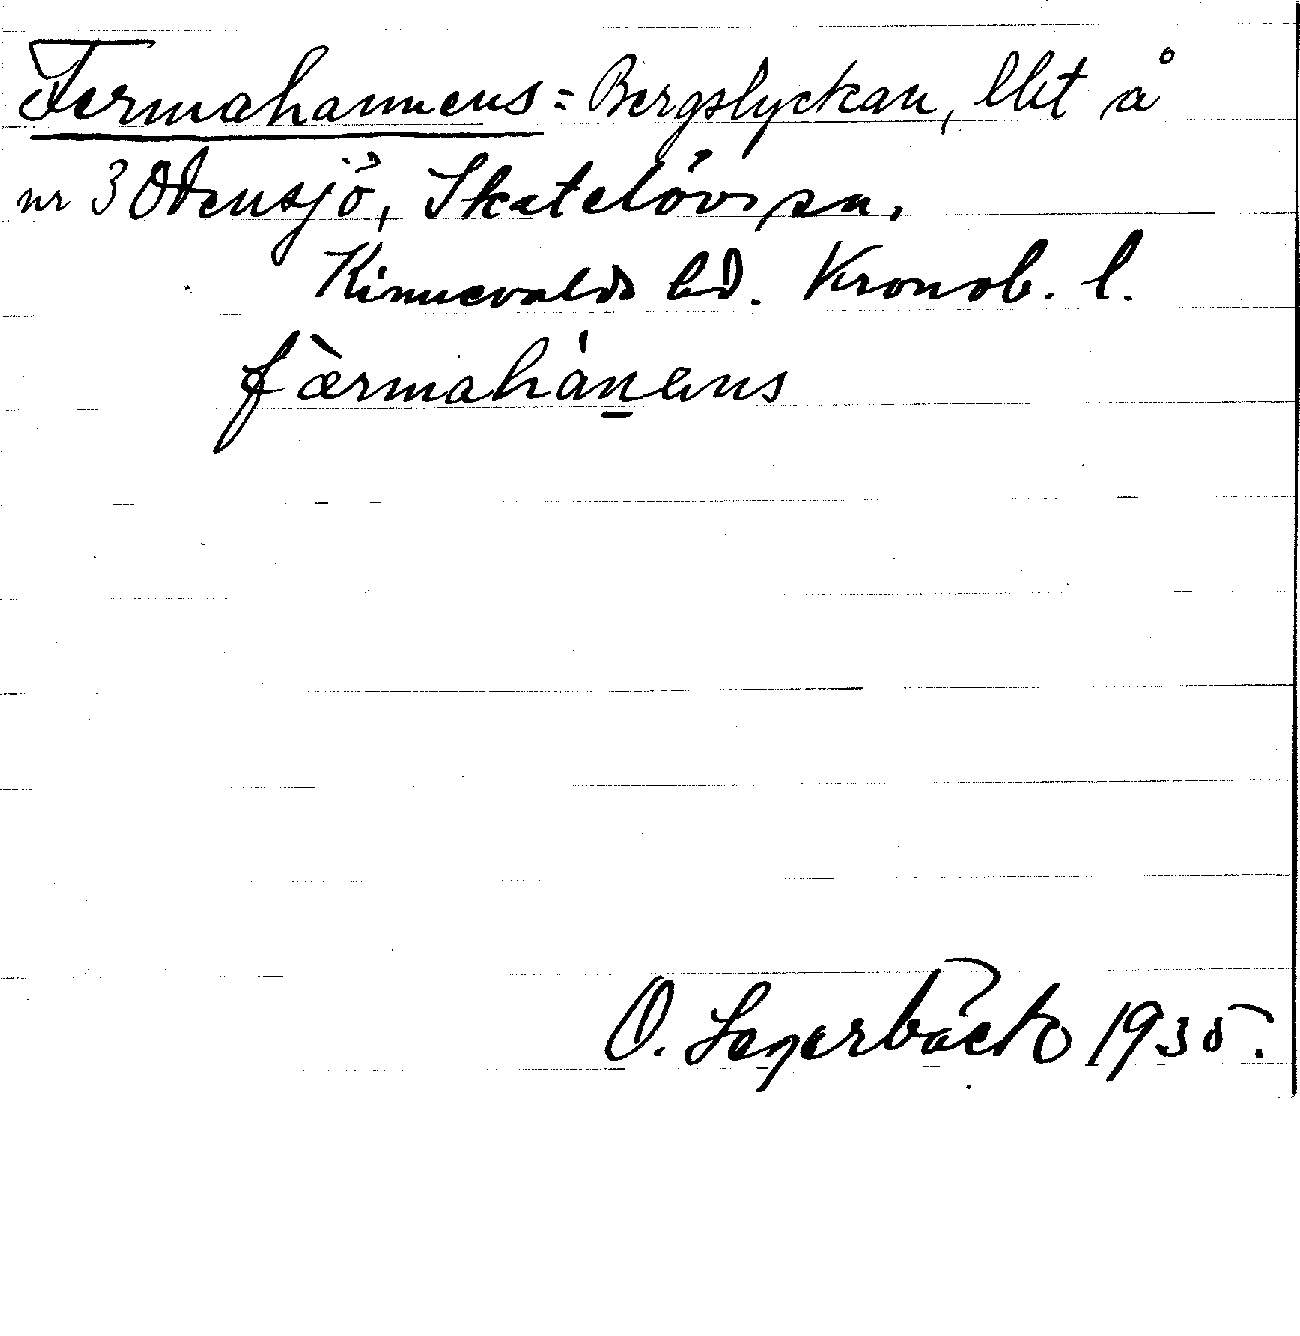 Fermahannens = Bergslyckan, lht å
nr 3 Odensjö, Skatelövs sn,
Kinnevalds hd. Kronob. l.
fàrmahánens
O. Lagerbäck 1935.